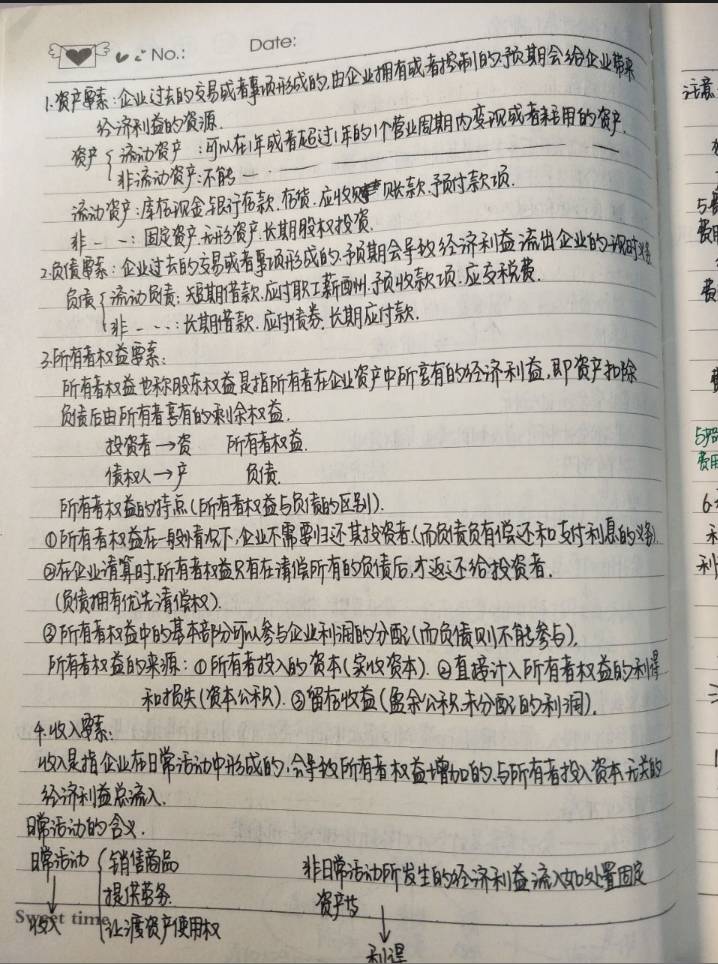 No.:
Date:
1.资产要素:企业过去的交易或者事项形成的,由企业拥有或者控制的,预期会给企业带来
经济利益的资源.
资产{流动资产:可以在1年或者超过1年的1个营业周期内变现或者耗用的资产.
非流动资产:不能—
流动资产:库存现金与银行存款.存货.应收账款.预付款项.
非--:固定资产.无形资产.长期股权投资.
2.负债要素:企业过去的交易或者事项形成的.预期会导致经济利益流出企业的现时义务
负债{流动负债:短期借款.应付职工薪酬.预收款项.应交税费.
非---:长期借款.应付债券.长期应付款.
3.所有者权益要素:
所有者权益也称股东权益是指所有者在企业资产中所享有的经济利益,即资产扣除
负债后由所有者享有的剩余权益.
投资者→资 所有者权益.
债权人→产 负债.
所有者权益的特点(所有者权益与负债的区别).
①所有者权益在一般情况下,企业不需要归还其投资者.(而负债负有偿还和支付利息的义务).
②在企业清算时,所有者权益只有在清偿所有的负债后,才返还给投资者.
(负债拥有优先清偿权).
③所有者权益中的基本部分可以参与企业利润的分配(而负债则不能参与).
所有者权益的来源:①所有者投入的资本(实收资本).②直接计入所有者权益的利得
和损失(资本公积).③留存收益(盈余公积.未分配的利润).
4.收入要素:
收入是指企业在日常活动中形成的,会导致所有者权益增加的,与所有者投入资本无关的
经济利益总流入.
日常活动的含义.
日常活动{销售商品 非日常活动所发生的经济利益流入如处置固定
↓ 提供劳务. 资产等
Sweet time
收入 让渡资产使用权 ↓
利得
注意
5.费
费用
费
费
费用
利